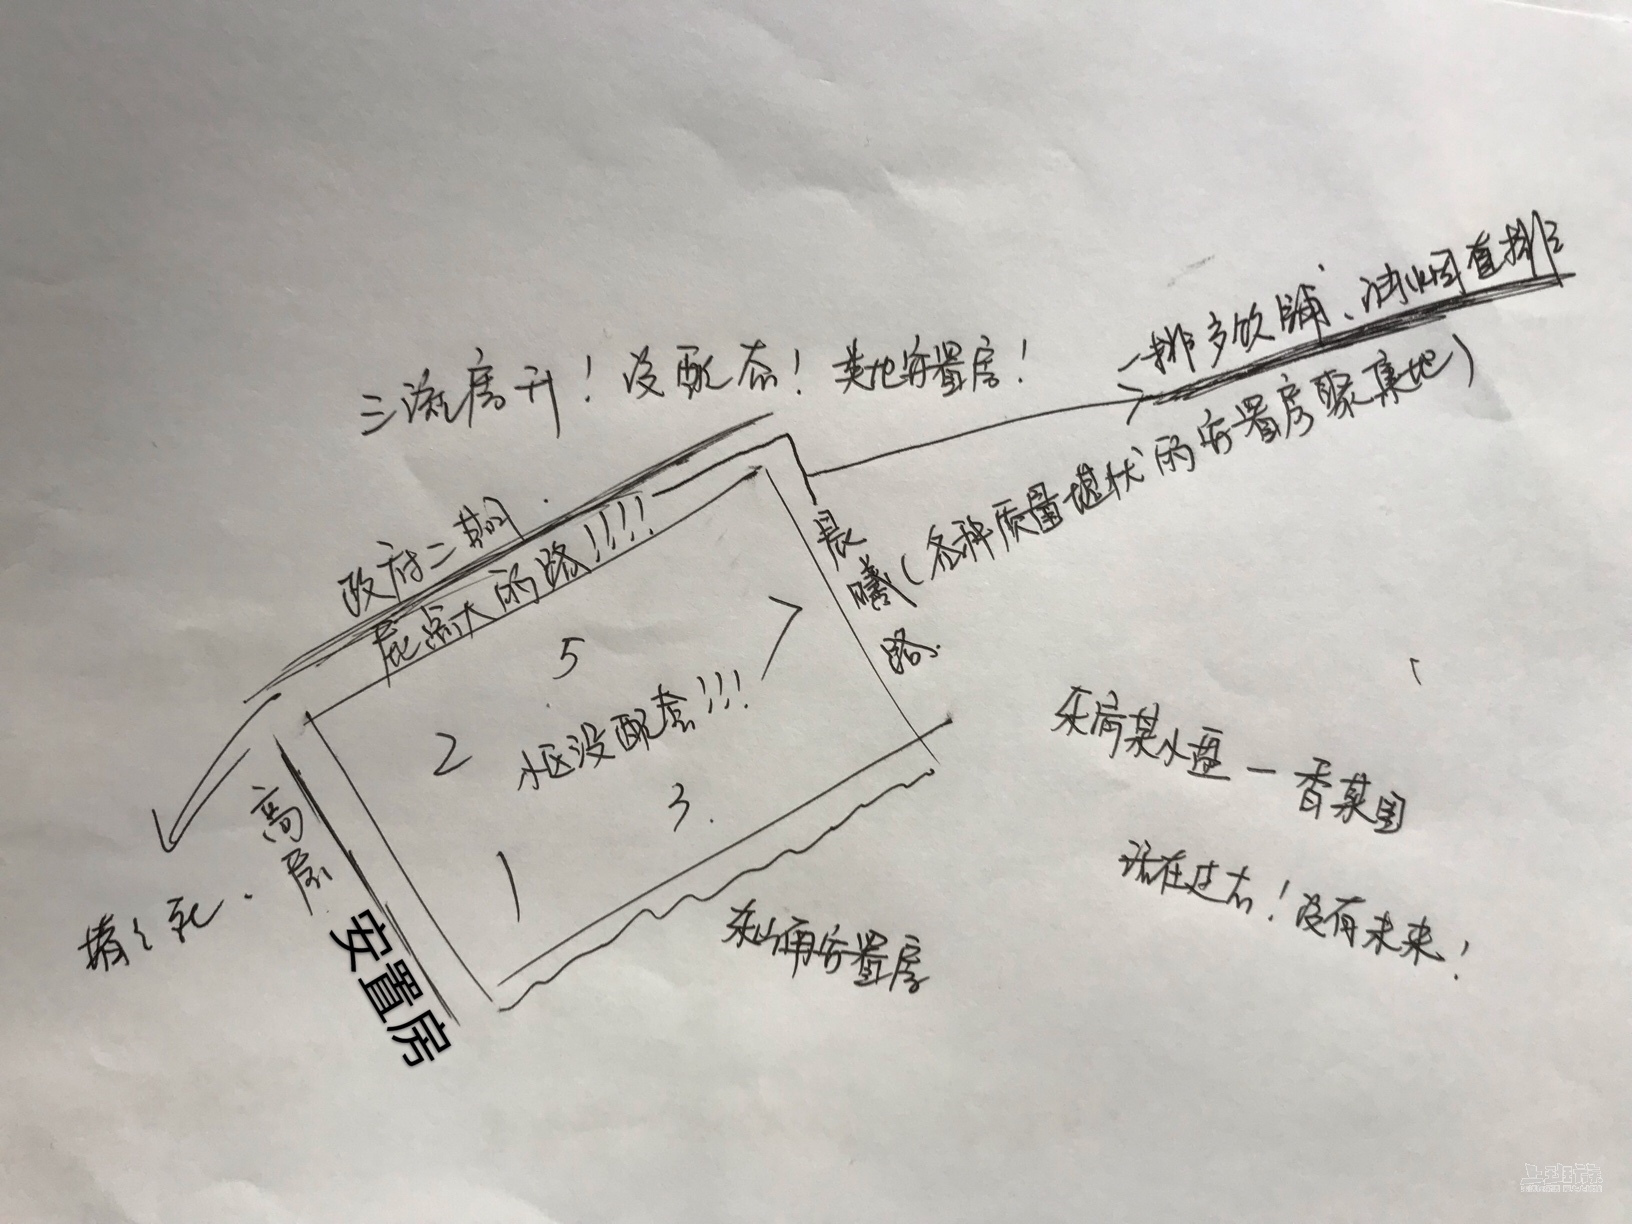 一排多饮铺、油烟直排
三流房开！没配套！类地安置房！
（各种质量堪忧的安置房聚集地）
政府二期
屁点大的路！！！！
晨曦路
5
2
小区没配套！！！
3.
1
高层
安置房
堵死.
东山南安置房
东南某小区一香菜园
活在过去！没有未来！
上班族